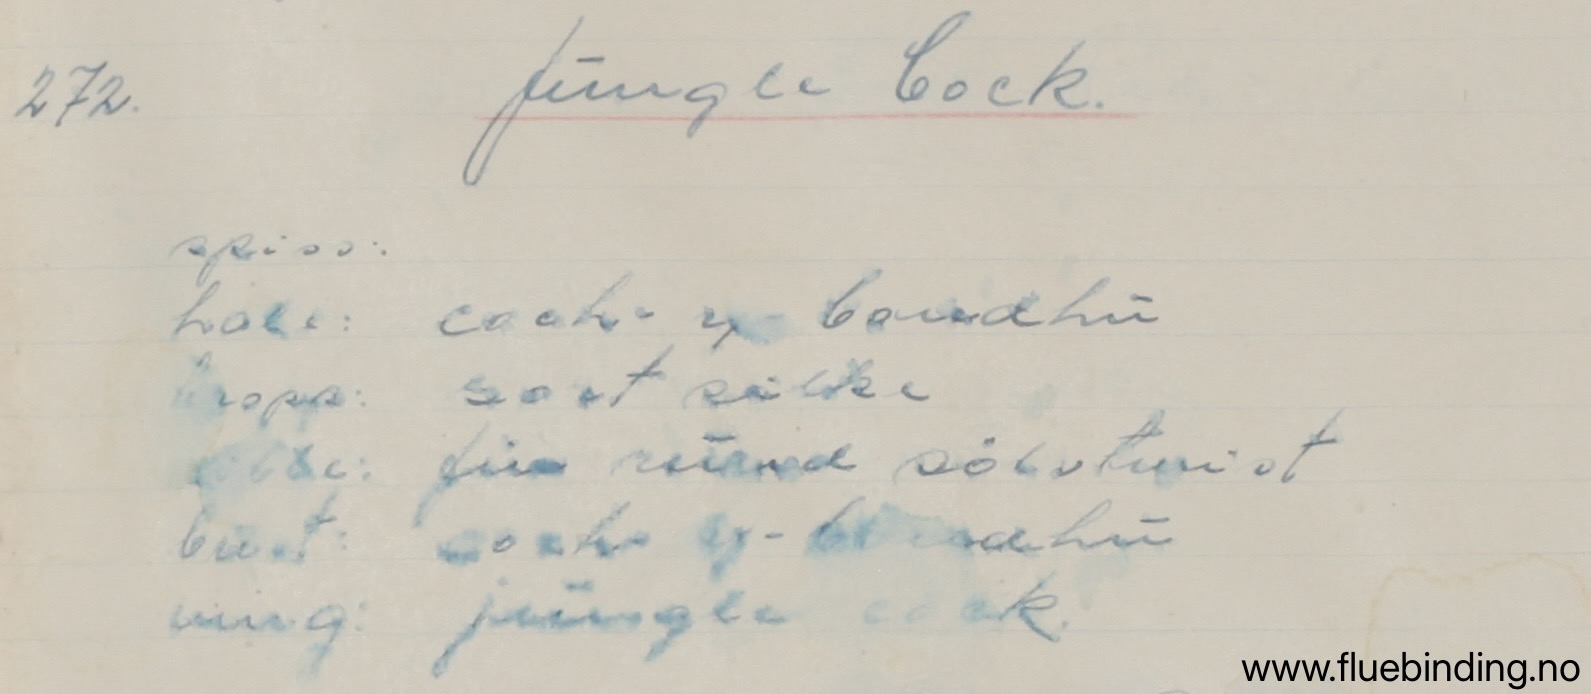 272. Jungle Cock.
spiss:
hale: coch-y-bondhu
kropp: sort silke
ribbe: fin rund sölvtwist
bust: coch-y-bondhu
ving: jungle cock.
www.fluebinding.no